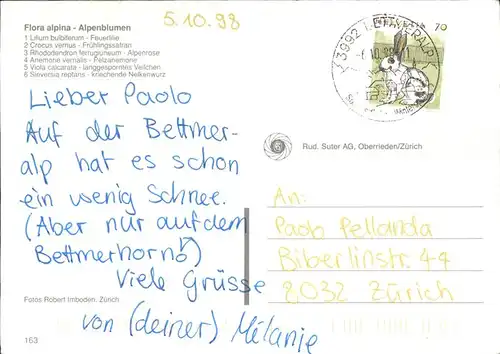 Flora alpina - Alpenblumen
1 Lilium bulbiferum - Feuerlilie
2 Crocus vernus - Frühlingssafran
3 Rhododendron ferrugineum - Alpenrose
4 Anemone vernalis - Pelzanemone
5 Viola calcarata - langgesporntes Veilchen
6 Sieversia reptans - kriechende Nelkenwurz
5.10.98
70
3992 BETTMERALP
Lieber Paolo
Auf der Bettmer-
alp hat es schon
ein wenig Schnee.
(Aber nur auf dem
Bettmerhorn!)
Viele Grüsse
von (deiner) Mélanie
Rud. Suter AG, Oberrieden/Zürich
An:
Paolo Pellanda
Biberlinstr. 44
8032 Zürich
Fotos Robert Imboden, Zürich
163